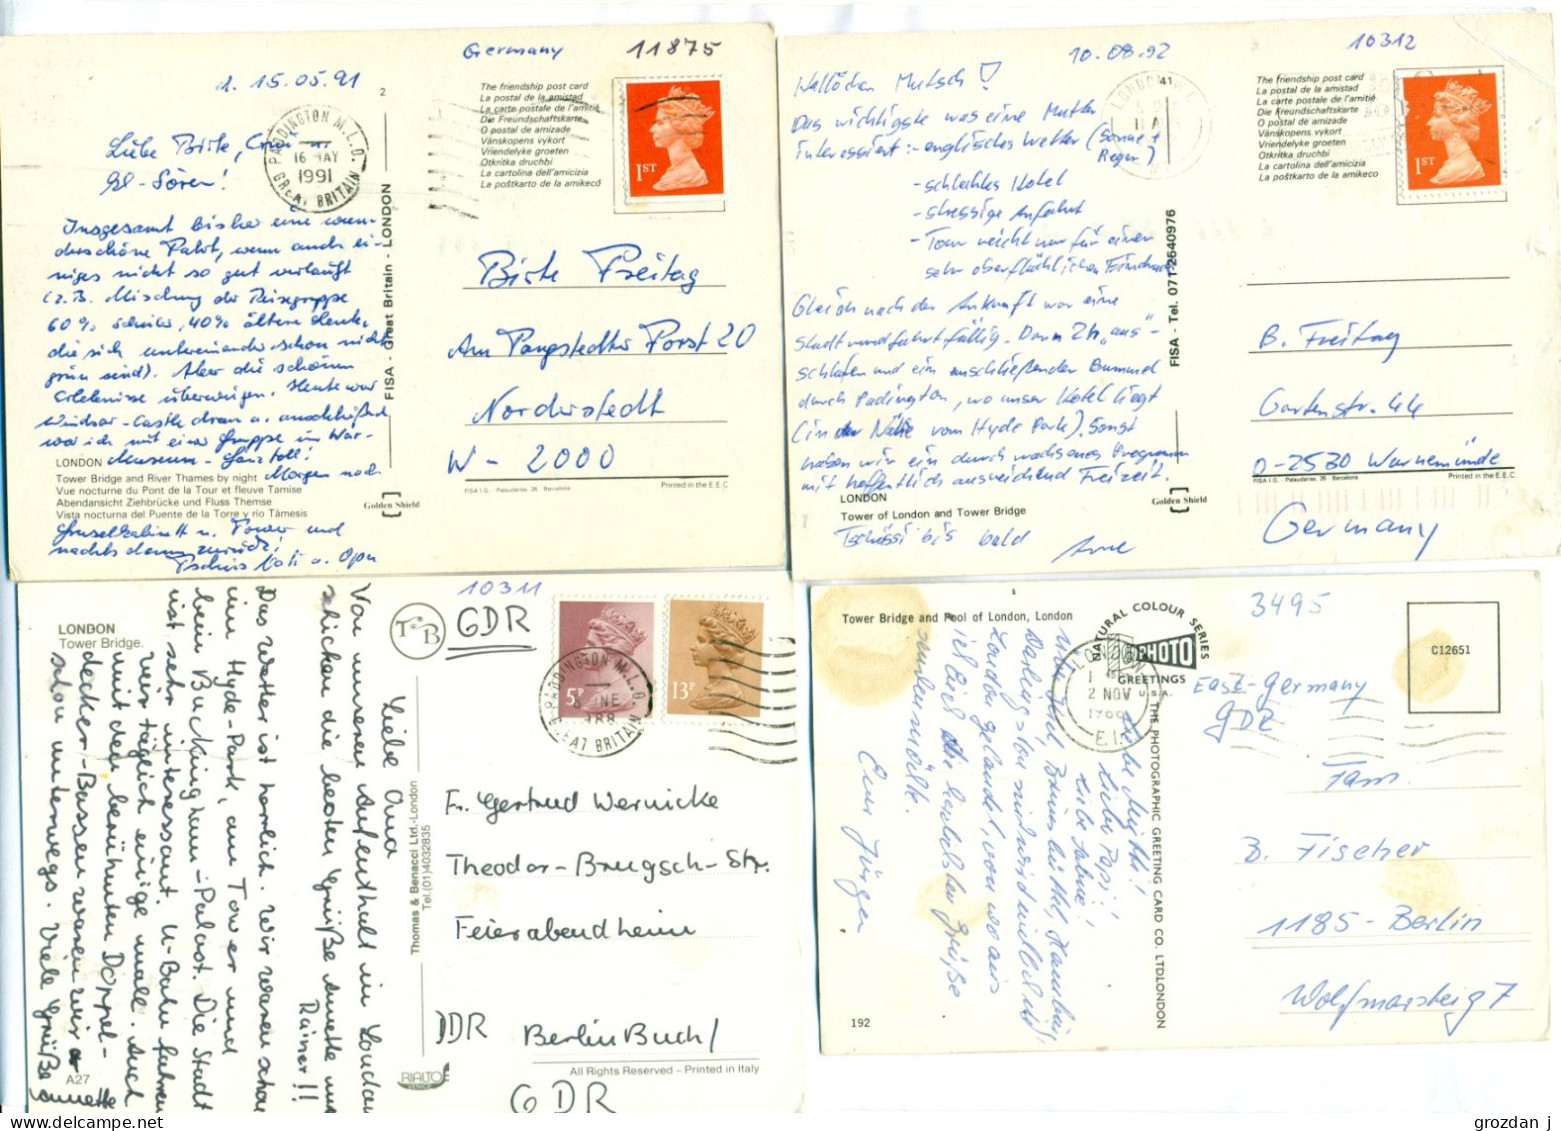 Germany
11875
d. 15.05.91
2
The friendship post card
La postal de la amistad
La carte postale de l'amitié
Die Freundschaftskarte
O postal de amizade
Vänskopens vykort
Vriendelyke groeten
Otkritka druchbi
La cartolina dell'amicizia
La poštkarto de la amikeco
1ST
PADDINGTON M.L.O.
16 MAY
1991
GREAT BRITAIN
Liebe Birte,
Insgesamt bisher eine wun-
derschöne Fahrt, wenn auch ei-
niges nicht so gut verläuft
(z.B. Mischung der Reisegruppe
60% Schüler, 40% ältere Leute,
die sich untereinander schon nicht
grün sind). Aber die schönen
Erlebnisse überwiegen. Heute war
Windsor-Castle dran u. anschließend
war ich mit einer Gruppe im War-
Museum - ganz toll! Morgen noch
Gruselkabinett u. Tower und
nachts dann zurück!
Tschüs u. Opa
FISA - Great Britain - LONDON
Birte Freitag
Am Pangstedter Forst 20
Norderstedt
W - 2000
LONDON
Tower Bridge and River Thames by night
Vue nocturne du Pont de la Tour et fleuve Tamise
Abendansicht Ziehbrücke und Fluss Themse
Vista nocturna del Puente de la Torre y río Támesis
FISA I.G. - Palaudarias, 26 - Barcelona
Printed in the E.E.C.
Golden Shield
10.08.92
10312
41
Hallöchen Mutsch!
Das wichtigste was eine Mutter
interessiert: - englisches Wetter (Sonne +
Regen)
- schlechtes Hotel
- stressige Anfahrt
- Tour reicht nur für einen
sehr oberflächlichen Eindruck
Gleich nach der Ankunft war eine
Stadtrundfahrt fällig. Dann 2h „aus"-
schlafen und ein anschließender Bummel
durch Padington, wo unser Hotel liegt
(in der Nähe vom Hyde Park). Sonst
haben wir ein durchwachsenes Programm
mit hoffentlich ausreichend Freizeit.
Tschüssi bis bald Arne
The friendship post card
La postal de la amistad
La carte postale de l'amitié
Die Freundschaftskarte
O postal de amizade
Vänskopens vykort
Vriendelyke groeten
Otkritka druchbi
La cartolina dell'amicizia
La poštkarto de la amikeco
1ST
FISA - Tel. 071-2540976
B. Freitag
Gartenstr. 44
D-2530 Warnemünde
Germany
LONDON
Tower of London and Tower Bridge
FISA I.G. - Palaudarias, 26 - Barcelona
Printed in the E.E.C.
Golden Shield
LONDON
Tower Bridge.
10311
T&B
GDR
5P
13P
PADDINGTON M.L.O.
GREAT BRITAIN
Liebe Oma
Von unserem Aufenthalt in London
schicken die besten Grüße Annette und
Rainer!!
Das Wetter ist herrlich. Wir waren schon
im Hyde-Park, am Tower und
beim Buckingham-Palast. Die Stadt
ist sehr interessant. U-Bahn fahren
wir täglich einige male. Auch
mit den berühmten Doppel-
decker-Bussen waren wir
schon unterwegs. Viele Grüße Annette
Thomas & Benacci Ltd.-London
Tel.(01)4032835
Fr. Gertrud Wernicke
Theodor-Brugsch-Str.
Feierabendheim
DDR
Berlin Buch/
GDR
A27
RIALTO
VENICE
All Rights Reserved – Printed in Italy
Tower Bridge and Pool of London, London
3495
NATURAL COLOUR SERIES
PHOTO
GREETINGS
U.S.A.
C12651
LONDON
2 NOV
E.1.
East-Germany
GDR
Lieber Papi!
London gelandet, von wo aus
ich Euch die herzlichsten Grüße
senden möchte.
Euer Jürgen
THE PHOTOGRAPHIC GREETING CARD CO. LTD LONDON
Fam.
B. Fischer
1185 - Berlin
Wolfmarsteig 7
192
grozdan j